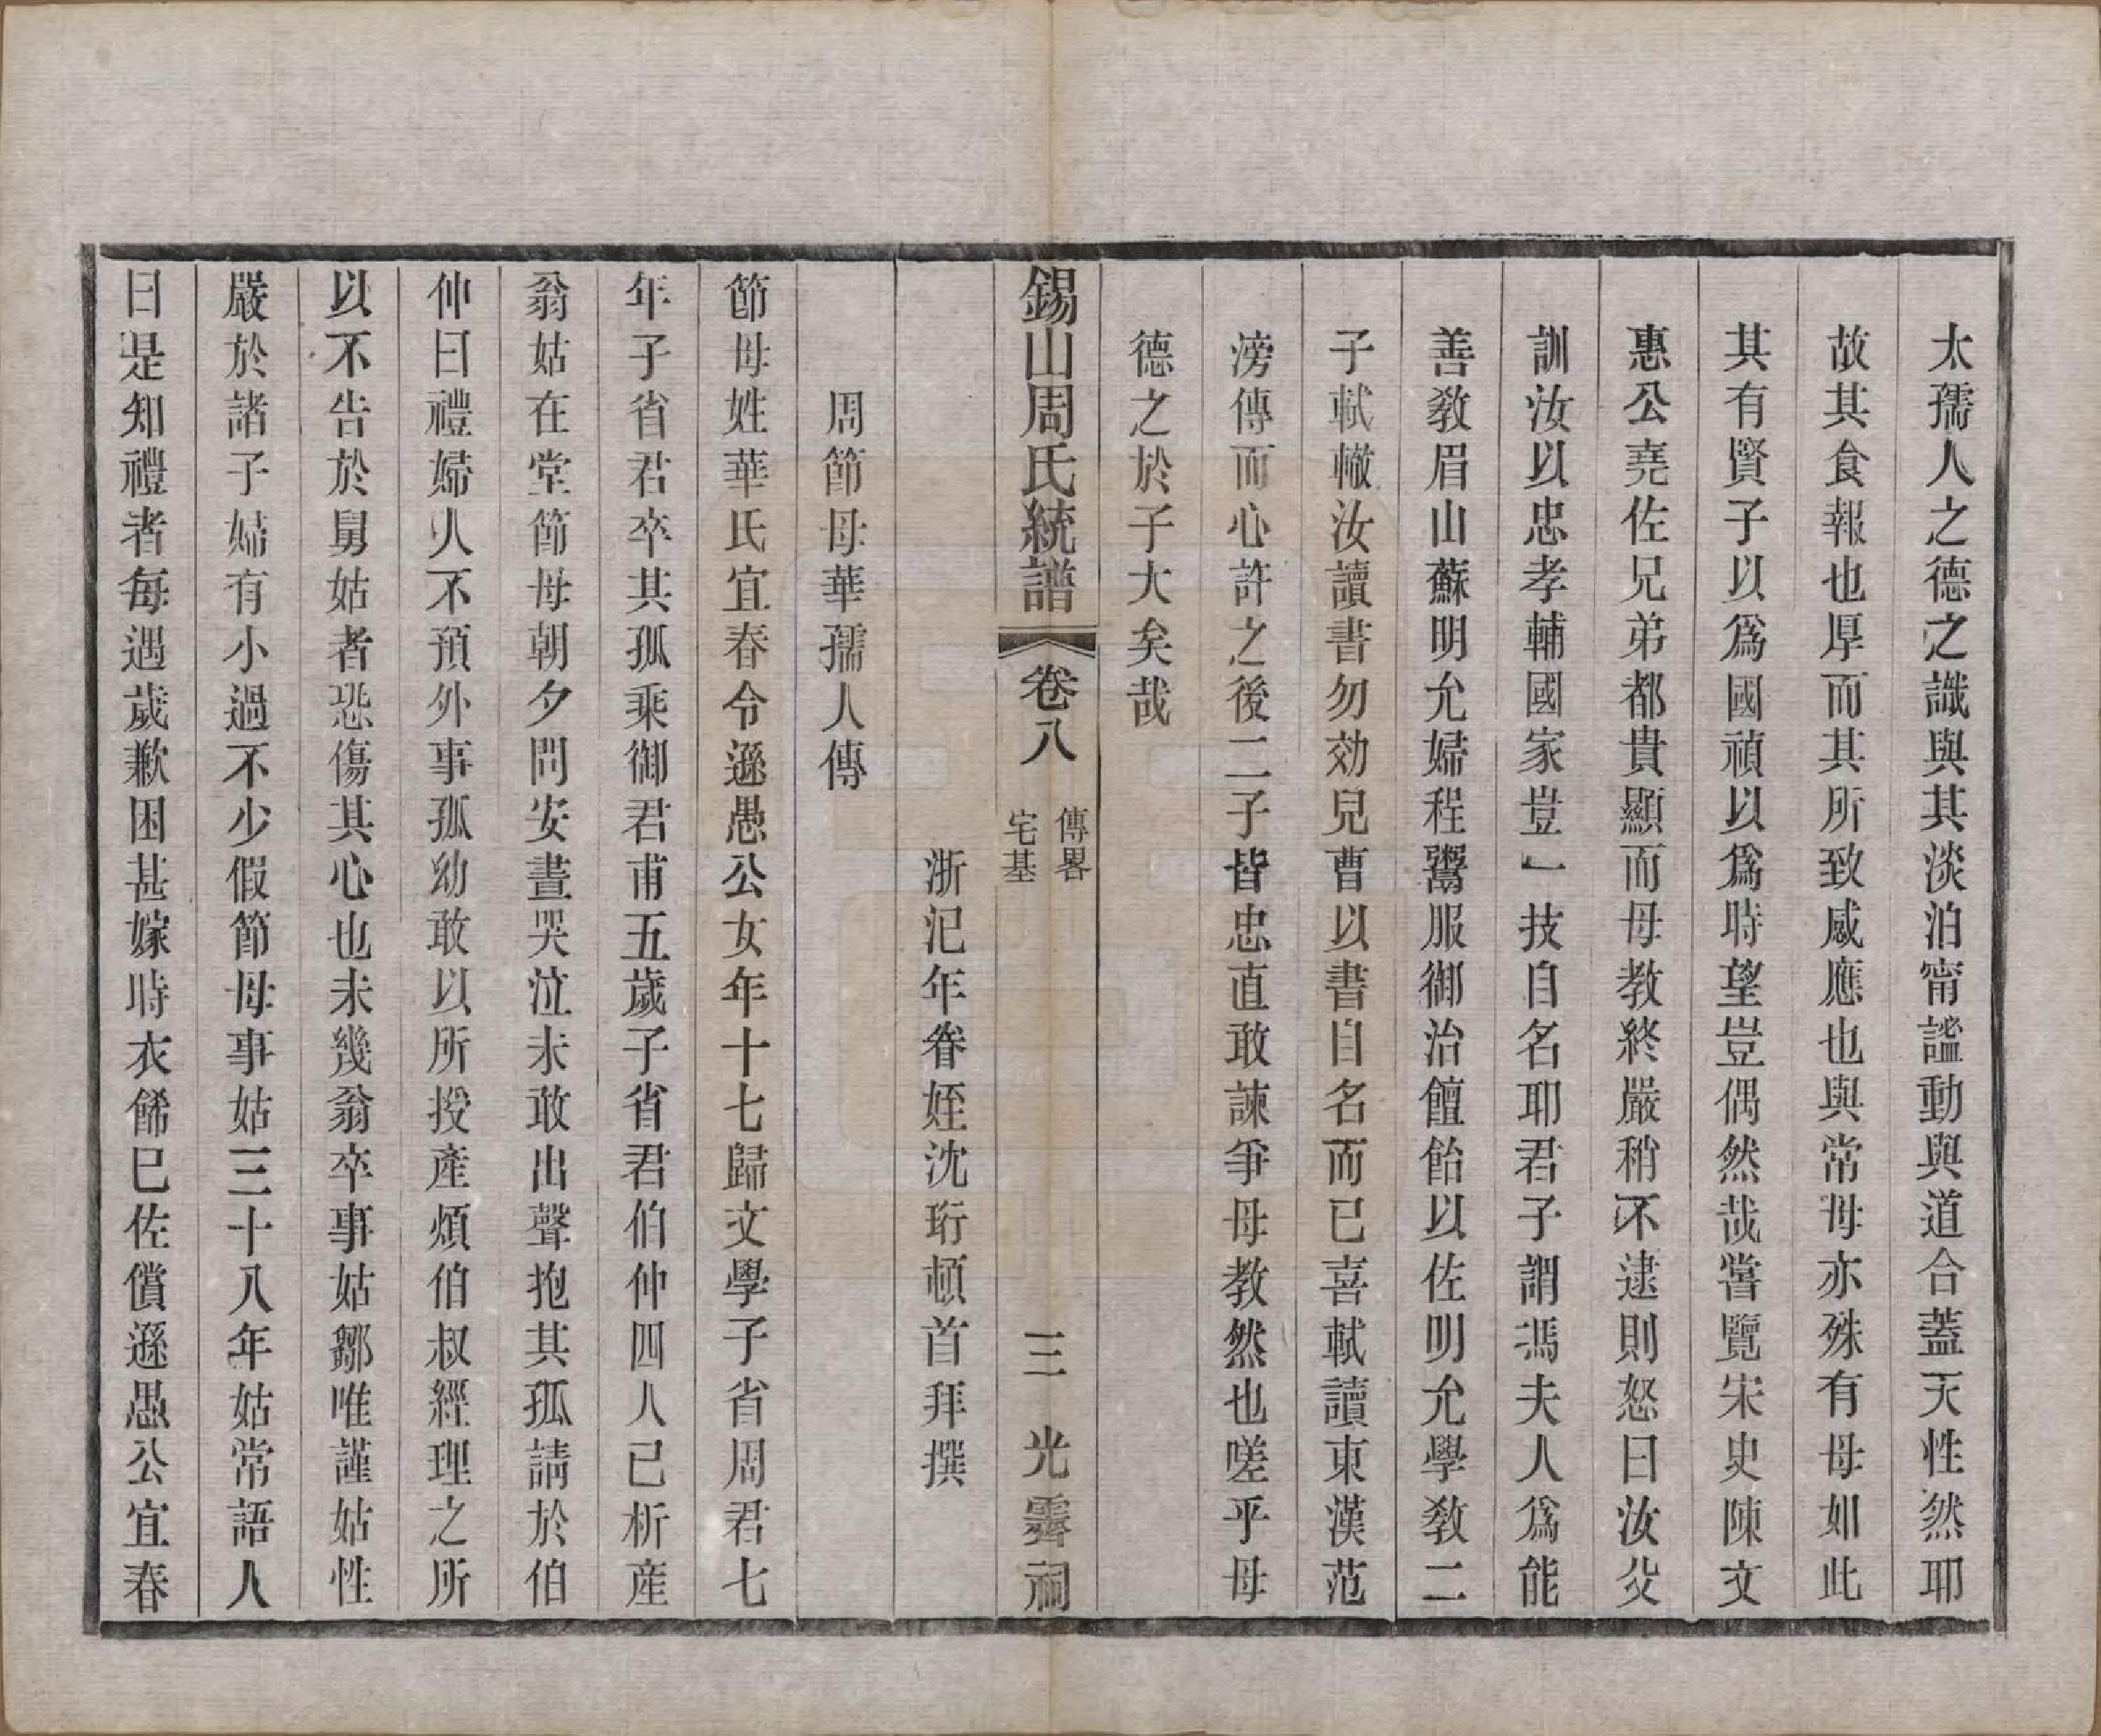 太孺人之德之識與其淡泊甯謐動與道合蓋天性然耶
故其食報也厚而其所致感應也與常母亦殊有母如此
其有賢子以爲國禎以爲時望豈偶然哉嘗覽宋史陳文
惠公堯佐兄弟都貴顯而母教終嚴稍不逮則怒曰汝父
訓汝以忠孝輔國家豈一技自名耶君子謂馮夫人爲能
善教眉山蘇明允婦程鬻服御治饘飴以佐明允學教二
子軾轍汝讀書勿効兒曹以書自名而已喜軾讀東漢范
滂傳而心許之後二子皆忠直敢諫爭母教然也嗟乎母
德之於子大矣哉
錫山周氏統譜 卷八 傳畧 宅基 三 光霽祠
浙汜年眷姪沈珩頓首拜撰
周節母華孺人傳
節母姓華氏宜春令遜愚公女年十七歸文學子省周君七
年子省君卒其孤乘御君甫五歲子省君伯仲四人已析產
翁姑在堂節母朝夕問安晝哭泣未敢出聲抱其孤請於伯
仲曰禮婦人不預外事孤幼敢以所授產煩伯叔經理之所
以不告於舅姑者恐傷其心也未幾翁卒事姑鄒唯謹姑性
嚴於諸子婦有小過不少假節母事姑三十八年姑常語人
曰是知禮者每遇歲歉困甚嫁時衣餙巳佐償遜愚公宜春